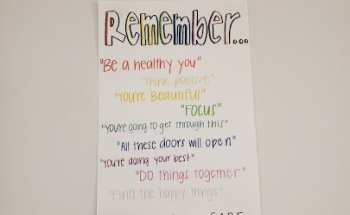 Remember...
"Be a healthy you"
"Think positive"
"You're Beautiful"
"FOCUS"
"You're going to get through this"
"All these doors will open"
"You're doing your best"
"DO things together"
"Find the happy things"